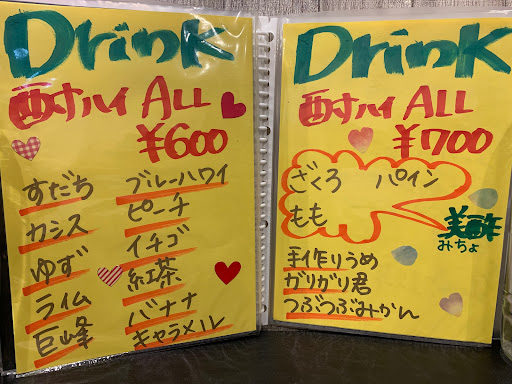 Drink
酎ハイ ALL
¥600
すだち ブルーハワイ
カシス ピーチ
ゆず イチゴ
ライム 紅茶
巨峰 バナナ
キャラメル
Drink
酎ハイ ALL
¥700
ざくろ パイン
もも
美酢
みちょ
手作りうめ
ガリガリ君
つぶつぶみかん